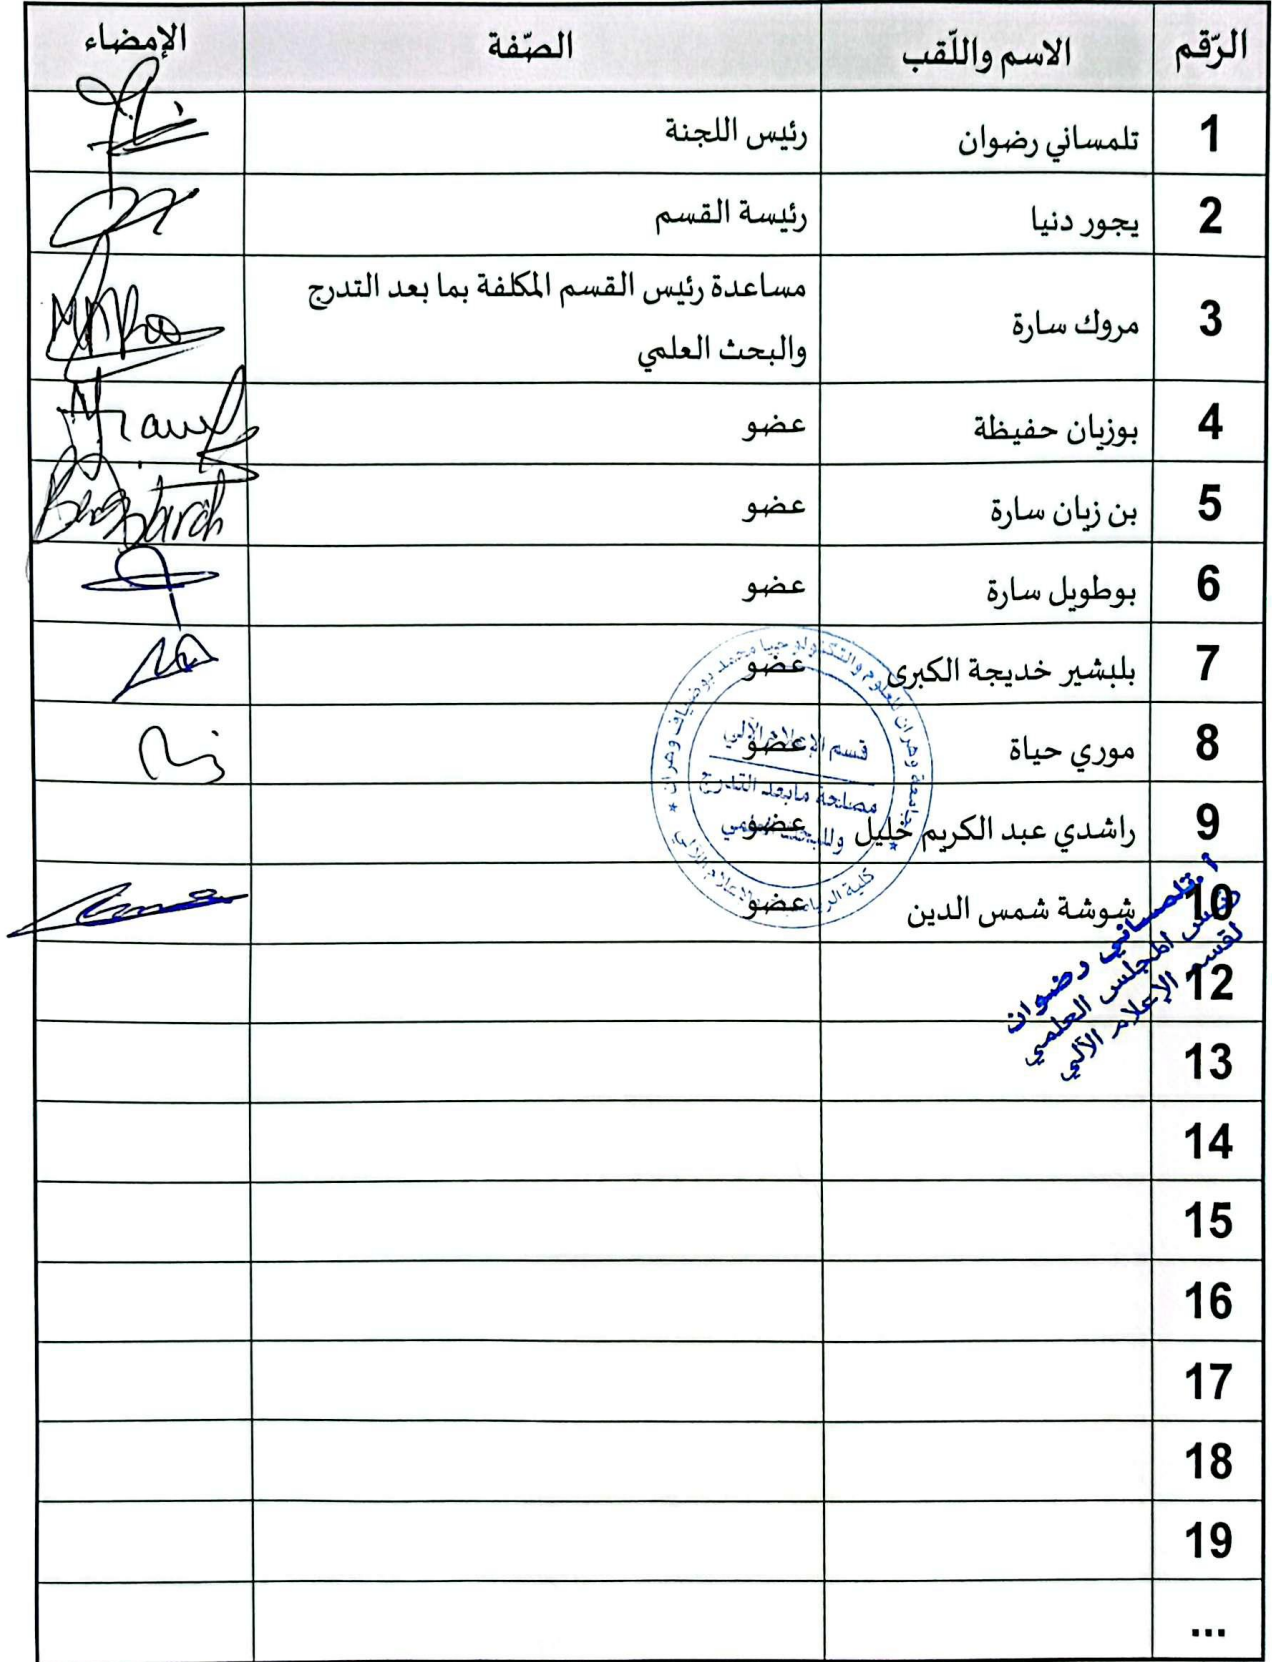 الرّقم الاسم واللّقب الصّفة الإمضاء
1 تلمساني رضوان رئيس اللجنة
2 يجور دنيا رئيسة القسم
3 مروك سارة مساعدة رئيس القسم المكلفة بما بعد التدرج
والبحث العلمي
4 بوزيان حفيظة عضو
5 بن زيان سارة عضو
6 بوطويل سارة عضو
7 بلبشير خديجة الكبرى عضو
8 موري حياة عضو
9 راشدي عبد الكريم خليل عضو
10 شوشة شمس الدين عضو
12
13
14
15
16
17
18
19
...
جامعة وهران للعلوم والتكنولوجيا محمد بوضياف وهران
قسم الإعلام الآلي
مصلحة مابعد التدرج
كلية
أ. تلمساني رضوان
رئيس المجلس العلمي
لقسم الإعلام الآلي